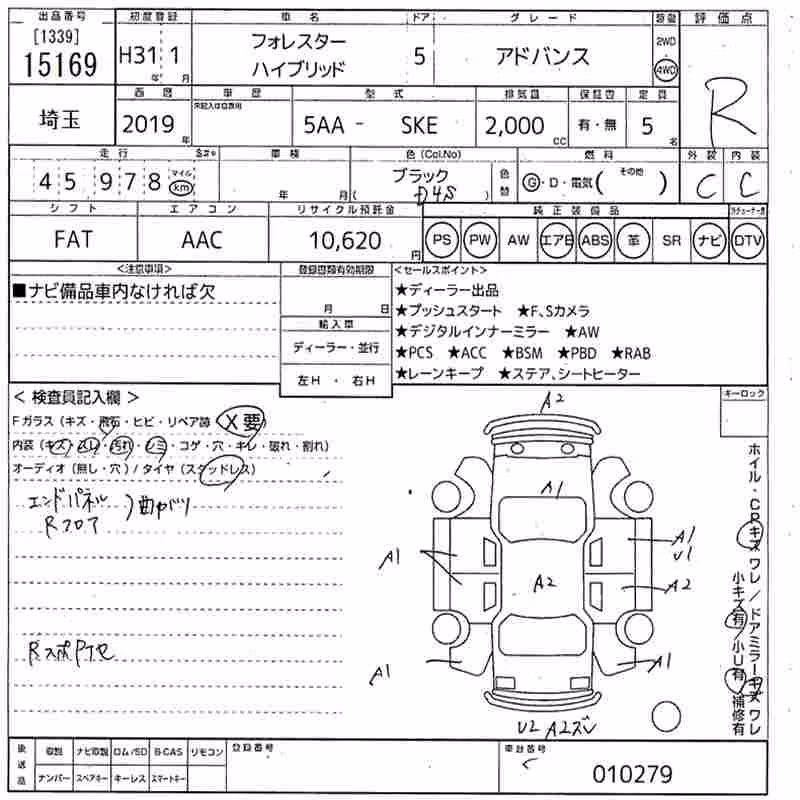 出品番号 初度登録 車名 ドア グレード 類別 評価点
[1339] 15169 H31年 1月 フォレスター ハイブリッド 5 アドバンス 2WD 4WD R
西暦 車歴 型式 排気量 保証書 定員
埼玉 2019年 未記入は自家用 5AA - SKE 2,000cc 有・無 5名
走行 車検 色(Col.No) 燃料 外装 内装
45978 マイル km 年 月 ブラック (D4S) 色替 G・D・電気(その他) C C
シフト エアコン リサイクル預託金 純正装備品
FAT AAC 10,620円 PS PW AW エアB ABS 革 SR ナビ DTV
<注意事項> 登録書類有効期限 <セールスポイント>
■ナビ備品車内なければ欠 月 日
★ディーラー出品
★プッシュスタート ★F、Sカメラ
輸入車
★デジタルインナーミラー ★AW
ディーラー・並行
★PCS ★ACC ★BSM ★PBD ★RAB
左H・右H
★レーンキープ ★ステア、シートヒーター
<検査員記入欄> キーロック
Fガラス(キズ・飛石・ヒビ・リペア跡 X要)
内装(キズ・スレ・汚れ・シミ・コゲ・穴・キレ・破れ・割れ)
オーディオ(無し・穴)/タイヤ(スタッドレス)
エンドパネル
Rフロア
曲がり
A2
A1
A1
A1
U1
A2
A2
A1
A1
U2 A2ズレ
ホイル・CRキズ ワレ/ドアミラーキズ ワレ
小キズ有/小U有/補修有
後送品 取説 ナビ取説 ロム/SD B-CAS リモコン 登録番号 車台番号
ナンバー スペアキー キーレス スマートキー 010279